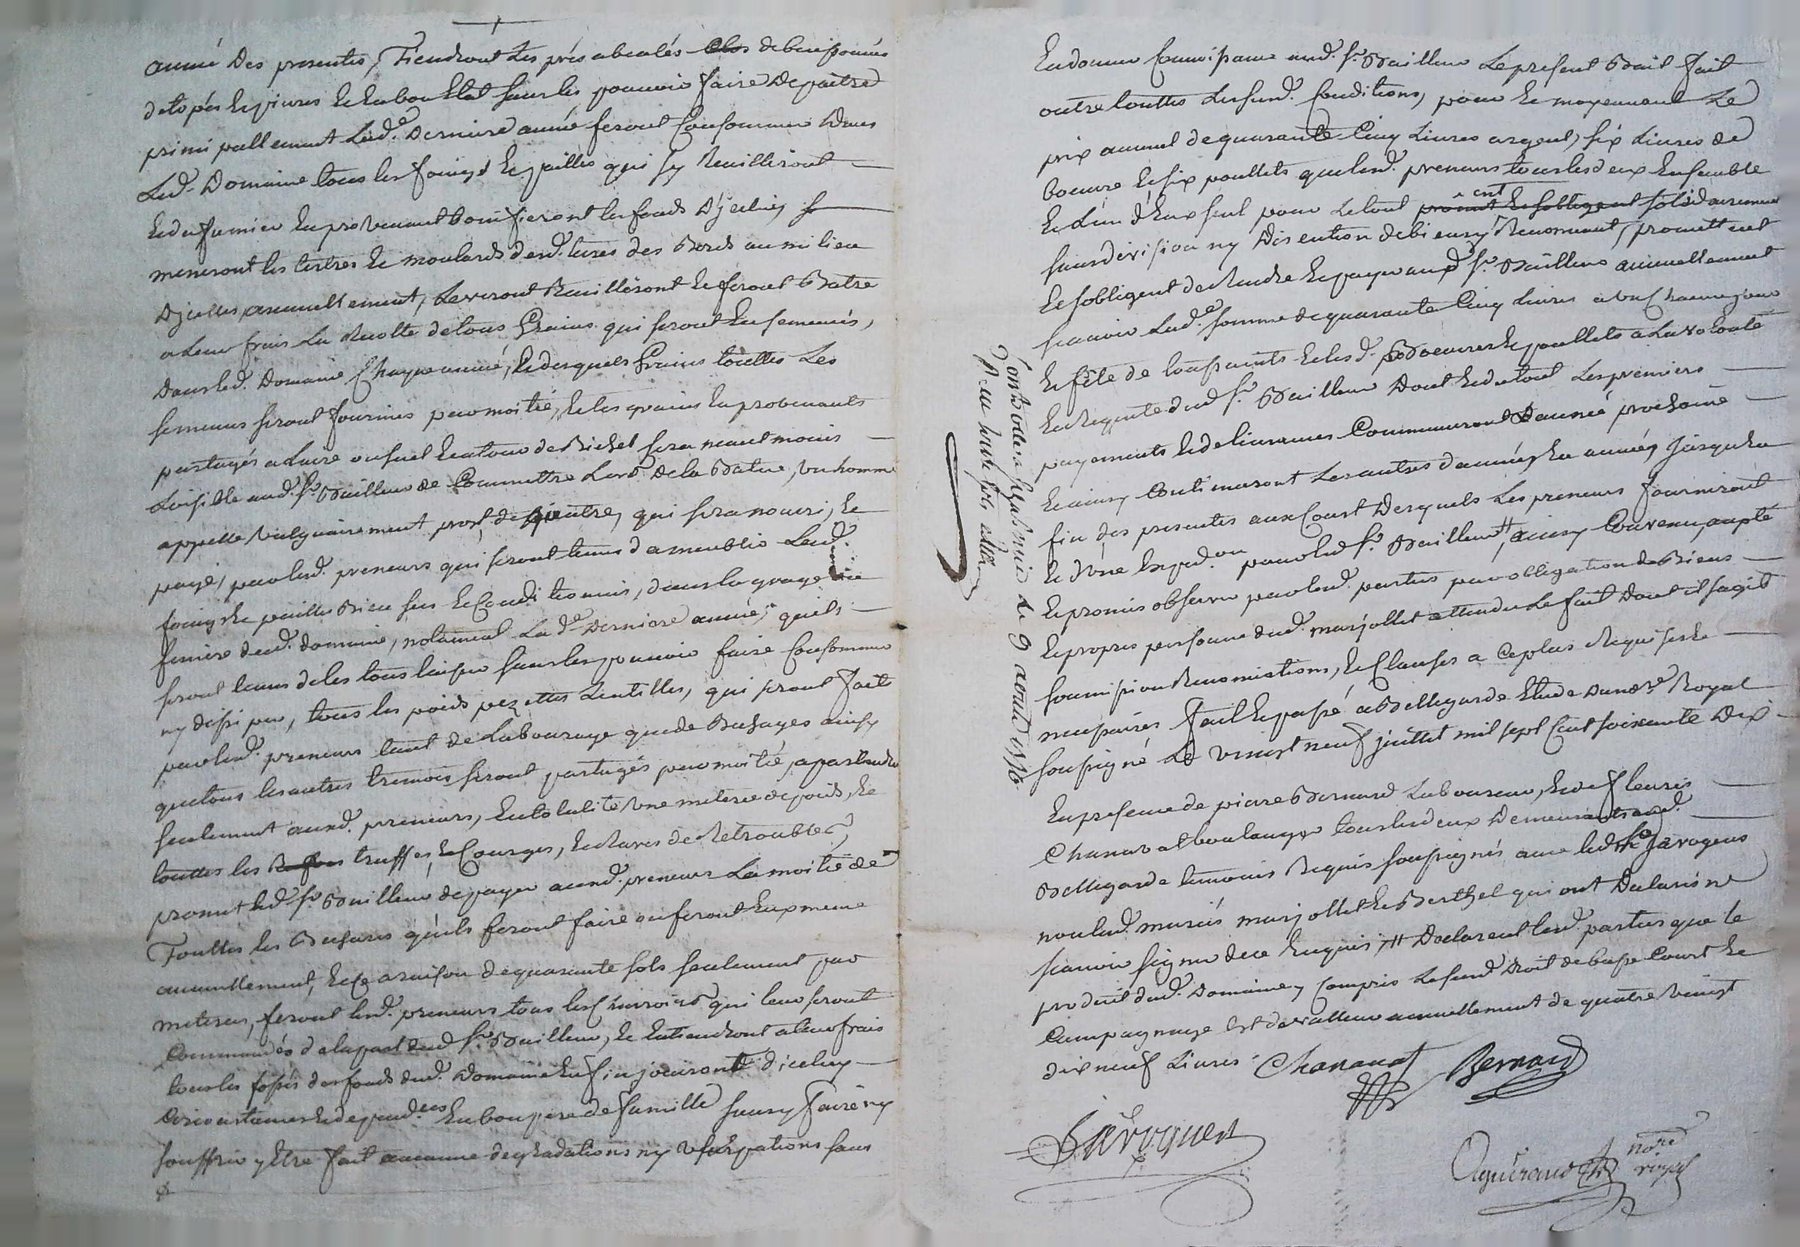 année des presentes, Tiendront les prés aboulés clos debuissonnés
detopés espieures et en bon Etat sans les pouvoir faire Depaitre
principallement lad.e Derniere année feront Consommer Dans
led. Domaine tous les foings et pailles qui sy Recuilliront
et du fumier en provenant bonifieront les fonds d'jceluy
meneront les tertres et moulards desd. terres des Bords au milieu
Djcelles annuellement, Leveront Recuilliront et feront Batre
a leur frais la Recolte de tous Grains qui seront Ensemencés,
Dans led. Domaine Chaque année, Et desquels Grains touttes Les
semences seront fournies par moitié, Et les grains En provenants
partagés a Laire ou suel Et autour de Bichet sera neantmoins
Loisible aud. Sr. Bailleur de Commettre Lors de la Batue, un homme
appellé vulgairement prod. de qui sera nouri, Et
payé, par lesd. preneurs qui seront tenus d'ameublir Lesd.
foings Et pailles Bien secs Et Conditionnés, dans la grange
feniere dud. domaine, notament Lad.e Derniere année, quils
seront tenus de les tous laisser sans les pouvoir faire Consommer
ny dissiper, tous les poids pezettes Lentilles, qui seront fait
par lesd. preneurs tant de Labourage que de Bechages ainsy
que tous les autres tremois seront partagés par moitié, apartiendra
seulement auxd. preneurs, En totalité Une meteree de poids, Et
touttes les truffes, Et Courges, Et Raves de Retroubles,
promet led. Sr. Bailleur de payer auxd. preneurs La moitié de
Touttes les Bechures qu'ils feront faire ou feront Eux meme
annuellement, Et Ce a raison de quarante sols seulement par
meteree, feront lesd. preneurs tous les Charrois qui leur seront
Commandés de la part dud. Sr. Bailleur, Et Entiendront a leur frais
tous les fossés des fonds dud. Domaine Enfin jouiront d'iceluy
Circonstances Et dependences En bon pere de famille sans y faire ny
souffrir y Etre fait aucunne degradations ny usurpations sans
En donner Connoissance aud. Sr. Bailleur Le present Bail fait
outre touttes les susd. Conditions, pour Et moyennant Le
prix annuel de quarante Cinq Livres argent, six Livres de
beurre Et six poullets que lesd. preneurs tous les deux Ensemble
Et L'un d'Eux seul pour Le tout promet Et sobligent solidairement
sans division ny Discution de biens y Renoncent, promettent
Et sobligent de Rendre Et payer aud. Sr. Bailleur annuellement
sçavoir Lad.e somme de quarante Cinq Livres a un Chacun jour
Et fête de toussaints Et lesd. Beurre Et poullets a La volonté
Et Requete dud. Sr. Bailleur Dont Et du tout Les premiers
payements Et delivrances Commenceront D'année prochaine
Et ainsy Continueront Les autres d'année En année, jusqu'a La
fin des presentes aux Cout Desquels Les preneurs fourniront
Et d'Une Exped.on pour led. Sr. Bailleur, ainsy Convenu, accepté
Et promis observer par lesd. parties par obligation de Biens
Et propre personne dud. marjollet attendu Le fait Dont il sagit
soumission Renonciations, Et Clauses a Ce plus Requises Et
necessaires fait Et passé a Bellegarde Etude Du no.re Royal
soussigné Le vingt neuf juillet mil sept Cent soixante Dix
En presence de pierre Bernard Laboureur, Et de fleuris
Chanavat boulanger tous les deux Demeurants aud.
Bellegarde temoins Requis soussignés avec led. Sr. Javogues
non lesd. mariés marjollet Et Berthet qui ont Declaré ne
sçavoir signer de ce Enquis, Declarent lesd. parties que le
produit dud. Domaine, Compris Le susd. Droit de basse Court Et
Campagnage Est de valleur annuellement de quatre vingt
dix neuf Livres Chanavat Bernard
Javogues
no.re royal
Controllé le 9 aout 1770